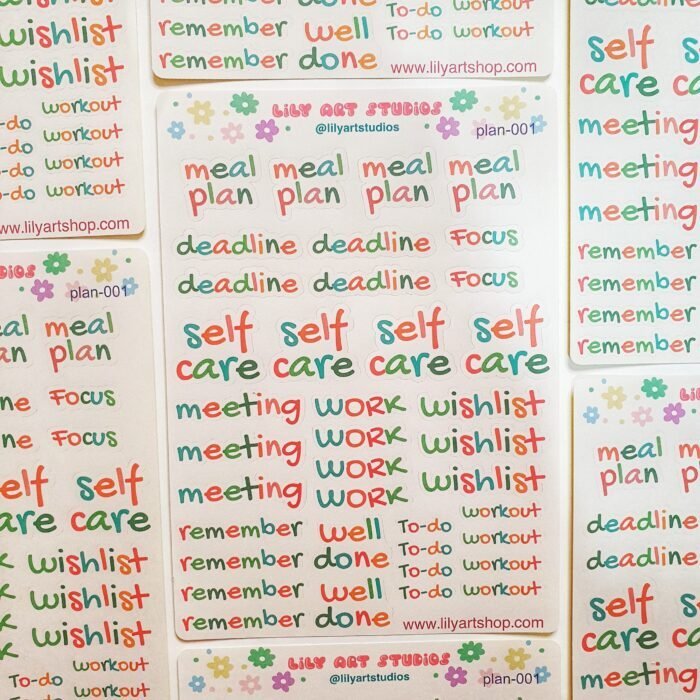 wishlist
wishlist
workout
To-do workout
workout
workout
www.lilyartshop.com
remember well To-do workout
remember done To-do workout
www.lilyartshop.com
self
care
meeting
meeting
meeting
remember
remember
remember
remember
LILY ART STUDIOS
@lilyartstudios
plan-001
meal meal meal meal
plan plan plan plan
deadline deadline FOCUS
deadline deadline FOCUS
self self self self
care care care care
meeting WORK wishlist
WORK
meeting WORK wishlist
meeting WORK wishlist
remember well To-do workout
remember done To-do workout
remember well To-do workout
remember done To-do workout
www.lilyartshop.com
STUDIOS
plan-001
meal
plan
FOCUS
FOCUS
self self
care care
wishlist
wishlist
wishlist
To-do workout
workout
meal
plan
deadline
deadline
self
care
meeting
LILY ART STUDIOS
@lilyartstudios
plan-001